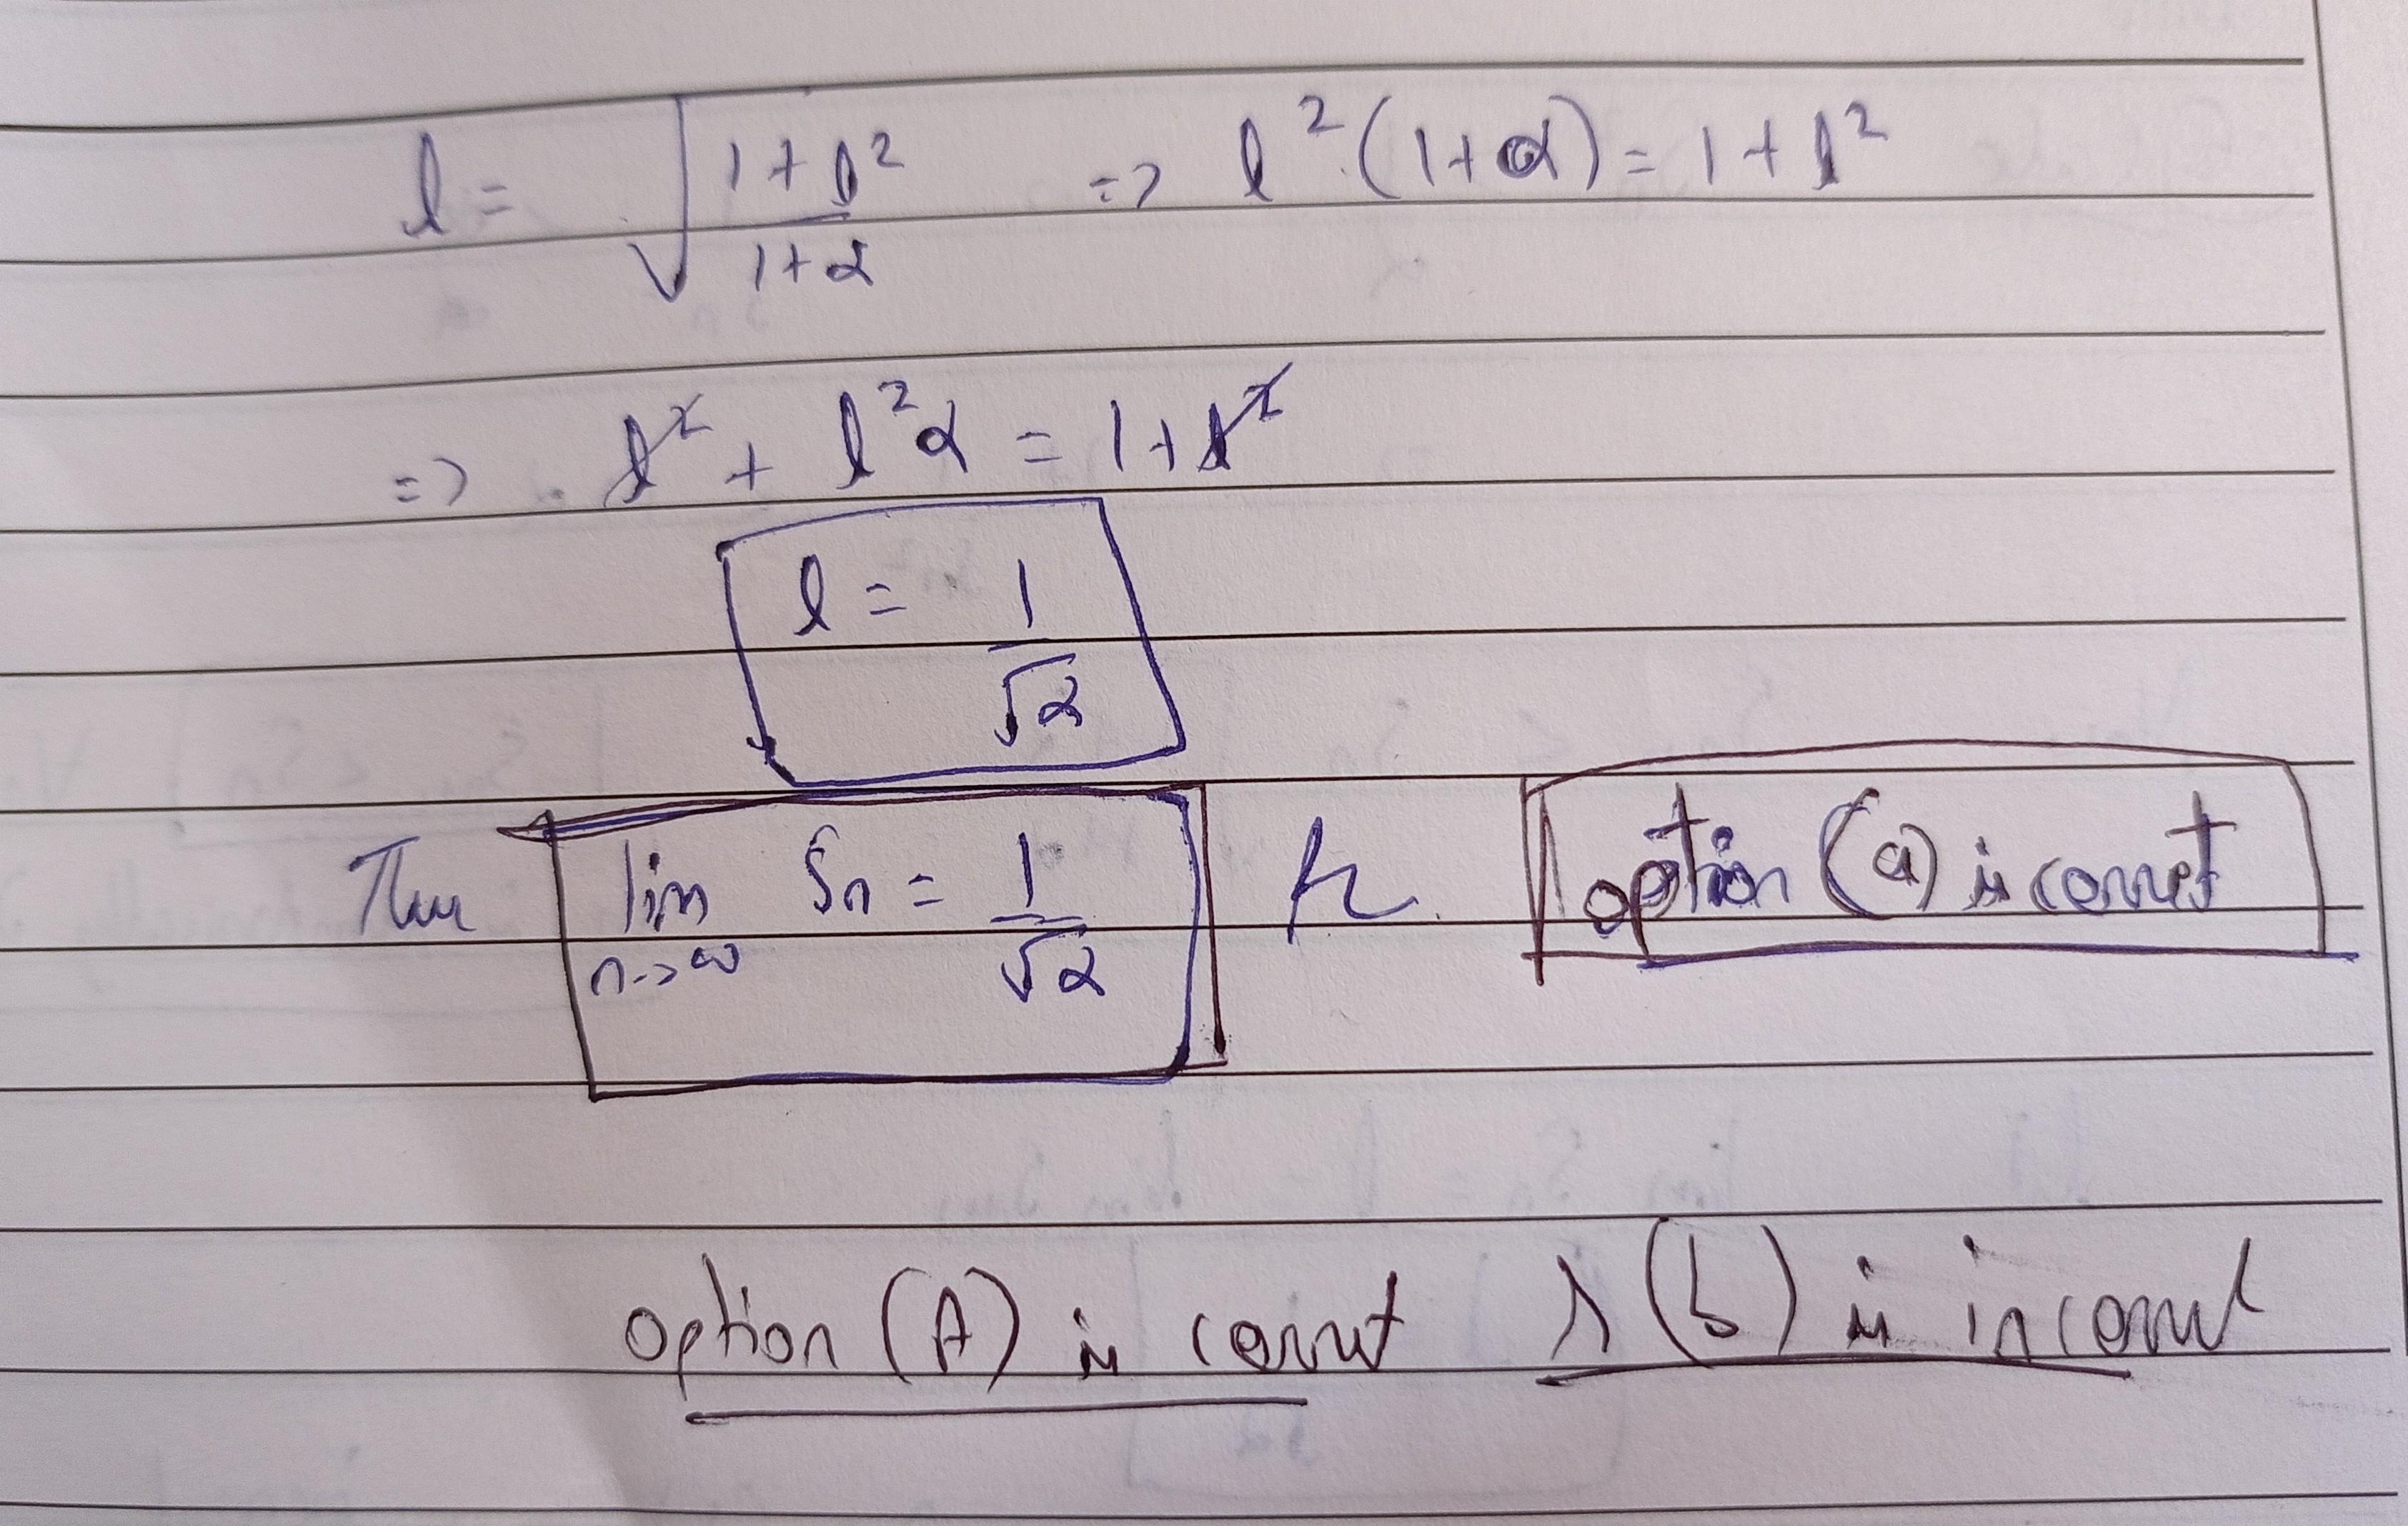 l = √((1+l²)/(1+α)) => l²(1+α) = 1+l²
=> l² + l²α = 1+l²
l = 1/√α
Thus lim n->∞ Sn = 1/√α option (a) is correct
option (A) is correct & (b) is incorrect